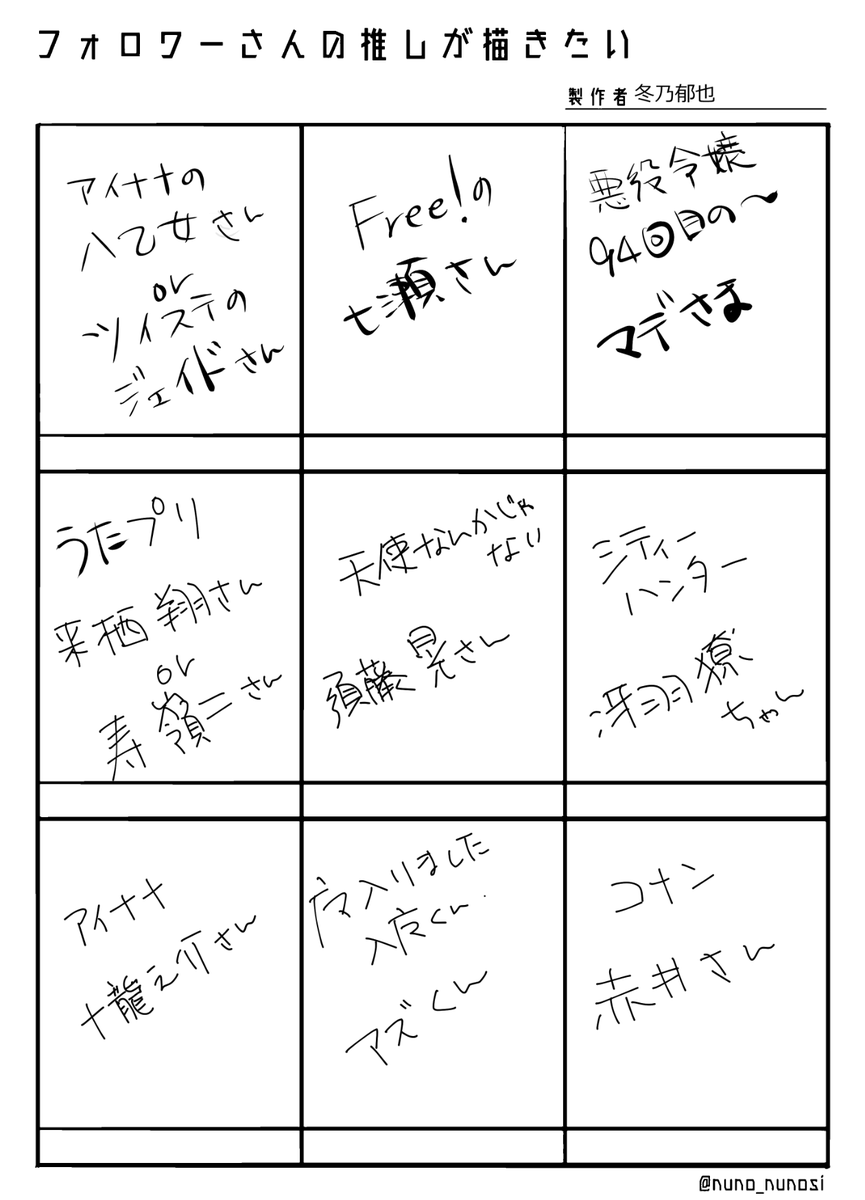 フォロワーさんの推しが描きたい
製作者 冬乃郁也
アイナナの
八乙女さん
or
ツイステの
ジェイドさん
Free!の
七瀬さん
悪役令嬢
94回目の〜
マデさま
うたプリ
来栖翔さん
or
寿嶺二さん
天使なんかじゃ
ない
須藤晃さん
シティー
ハンター
冴羽獠
ちゃん
アイナナ
十龍之介さん
入りました
入间くん
アズくん
コナン
赤井さん
@nuno_nunosi